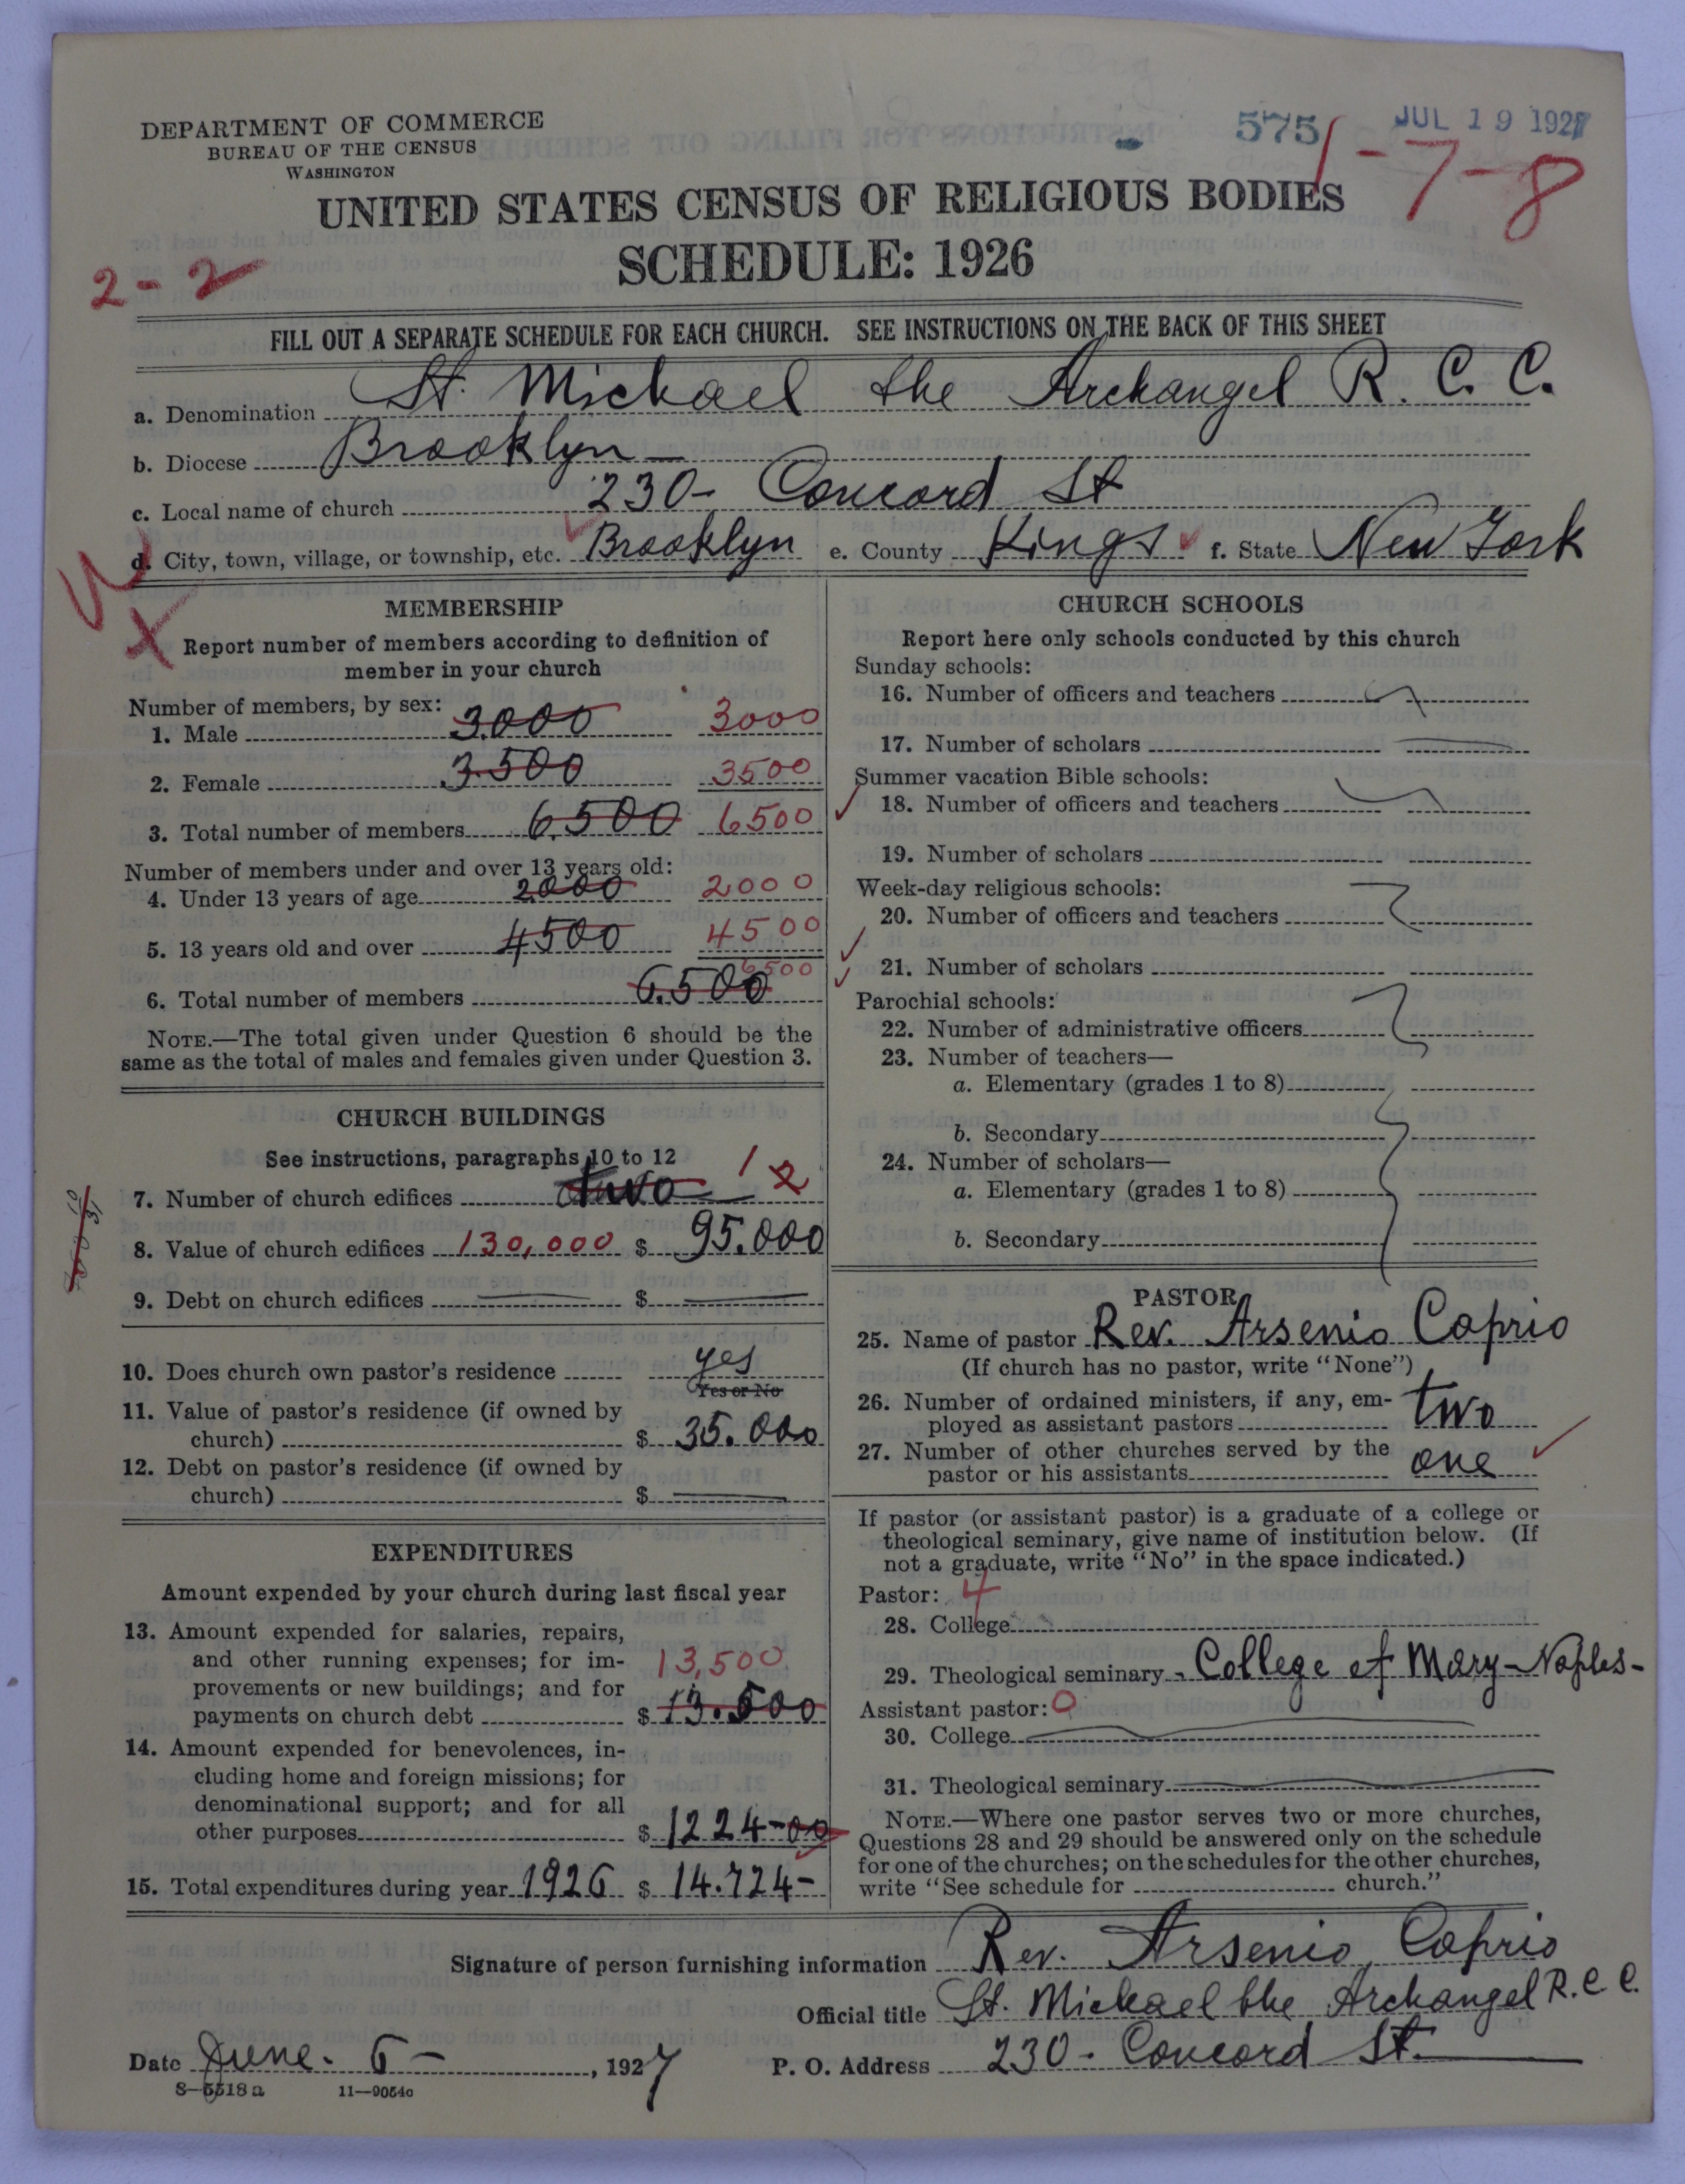 DEPARTMENT OF COMMERCE
BUREAU OF THE CENSUS
WASHINGTON
575
JUL 19 1927
1-7-8
UNITED STATES CENSUS OF RELIGIOUS BODIES
SCHEDULE: 1926
2-2
FILL OUT A SEPARATE SCHEDULE FOR EACH CHURCH. SEE INSTRUCTIONS ON THE BACK OF THIS SHEET
a. Denomination St. Michael the Archangel R. C. C.
b. Diocese Brooklyn —
c. Local name of church 230- Concord St
d. City, town, village, or township, etc. Brooklyn e. County Kings f. State New York
MEMBERSHIP
Report number of members according to definition of
member in your church
Number of members, by sex:
1. Male 3.000 3000
2. Female 3.500 3500
3. Total number of members 6.500 6500
Number of members under and over 13 years old:
4. Under 13 years of age 2000 2000
5. 13 years old and over 4500 4500
6500
6. Total number of members 6.500
NOTE.—The total given under Question 6 should be the
same as the total of males and females given under Question 3.
CHURCH BUILDINGS
See instructions, paragraphs 10 to 12
7. Number of church edifices two — 1 2
8. Value of church edifices 130,000 $ 95.000
9. Debt on church edifices $
10. Does church own pastor's residence yes
Yes or No
11. Value of pastor's residence (if owned by
church) $ 35.000
12. Debt on pastor's residence (if owned by
church) $
EXPENDITURES
Amount expended by your church during last fiscal year
13. Amount expended for salaries, repairs,
and other running expenses; for im-
provements or new buildings; and for
payments on church debt 13,500
$ 13.500
14. Amount expended for benevolences, in-
cluding home and foreign missions; for
denominational support; and for all
other purposes $ 1224-00
15. Total expenditures during year 1926 $ 14.724-
CHURCH SCHOOLS
Report here only schools conducted by this church
Sunday schools:
16. Number of officers and teachers
17. Number of scholars
Summer vacation Bible schools:
18. Number of officers and teachers
19. Number of scholars
Week-day religious schools:
20. Number of officers and teachers
21. Number of scholars
Parochial schools:
22. Number of administrative officers
23. Number of teachers—
a. Elementary (grades 1 to 8)
b. Secondary
24. Number of scholars—
a. Elementary (grades 1 to 8)
b. Secondary
PASTOR
25. Name of pastor Rev. Arsenio Caprio
(If church has no pastor, write "None")
26. Number of ordained ministers, if any, em-
ployed as assistant pastors two
27. Number of other churches served by the
pastor or his assistants one
If pastor (or assistant pastor) is a graduate of a college or
theological seminary, give name of institution below. (If
not a graduate, write "No" in the space indicated.)
Pastor: 4
28. College
29. Theological seminary - College of Mary-Naples-
Assistant pastor: 0
30. College
31. Theological seminary
NOTE.—Where one pastor serves two or more churches,
Questions 28 and 29 should be answered only on the schedule
for one of the churches; on the schedules for the other churches,
write "See schedule for church."
Signature of person furnishing information Rev. Arsenio Caprio
Official title St. Michael the Archangel R.C.C.
Date June. 6 — , 1927 P. O. Address 230- Concord St.
8-5518a 11-9054c